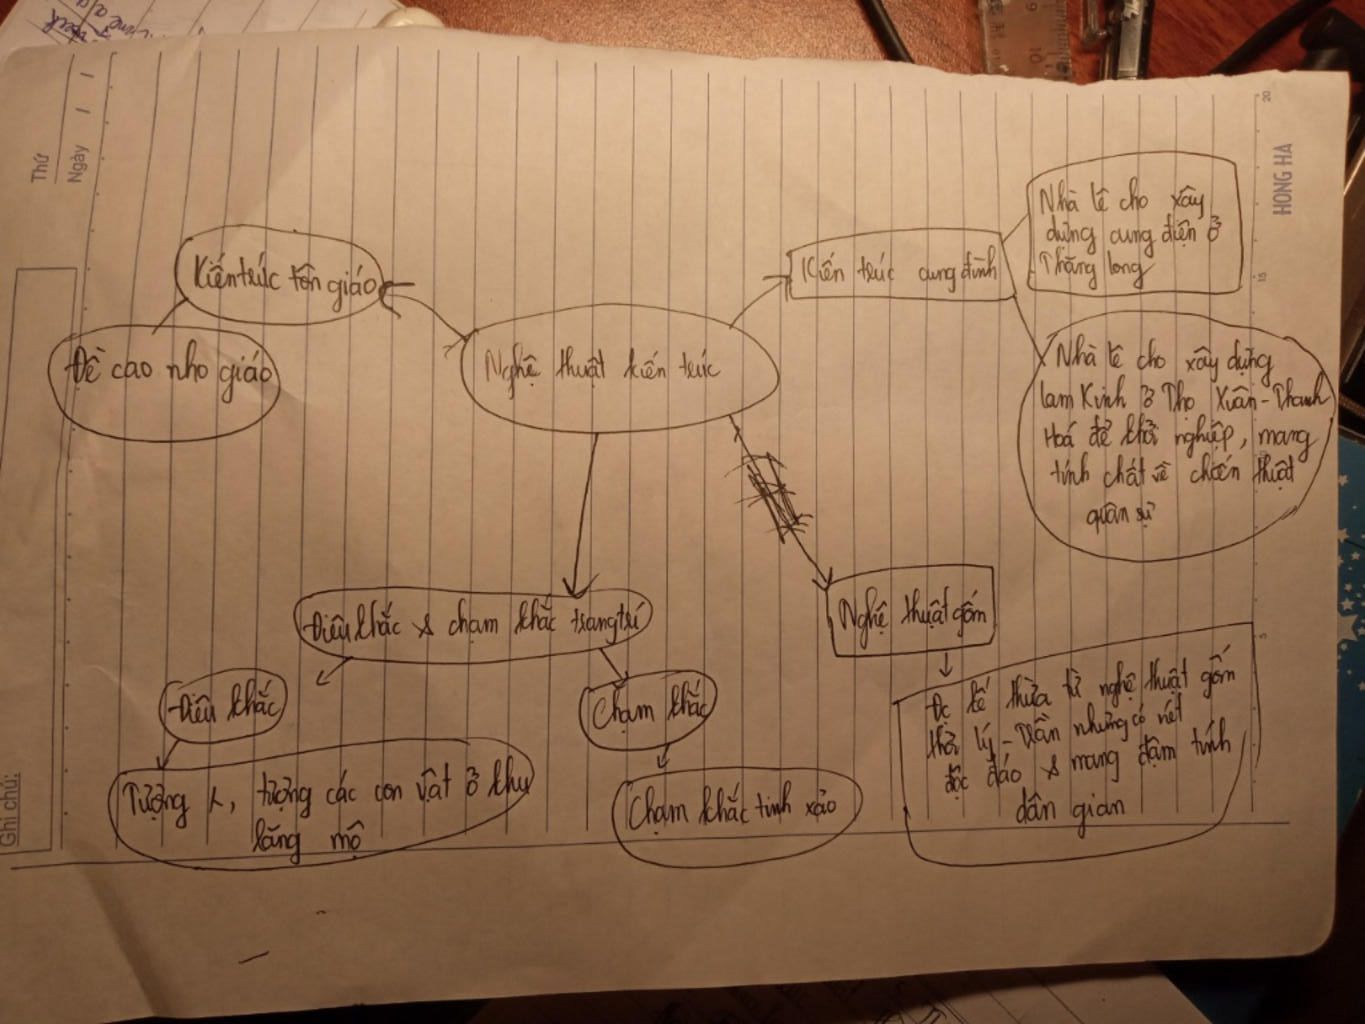 Thứ
Ngày / /
HONG HA
20
15
10
5
Ghi chú:
Nghệ thuật kiến trúc
Kiến trúc tôn giáo
Đề cao nho giáo
Kiến trúc cung đình
Nhà lê cho xây
dưng cung điện ở
Thăng long
Nhà lê cho xây dựng
lam Kinh ở Thọ Xuân - Thanh
Hoá để khởi nghiệp, mang
tính chất về chiến thuật
quân sự
Điêu khắc & chạm khắc trang trí
Điêu khắc
Tượng
, tượng các con vật ở khu
lăng mộ
Chạm khắc
Chạm khắc tinh xảo
Nghệ thuật gốm
Đc kế thừa từ nghệ thuật gốm
thời lý - Trần nhưng có nét
độc đáo & mang đậm tính
dân gian